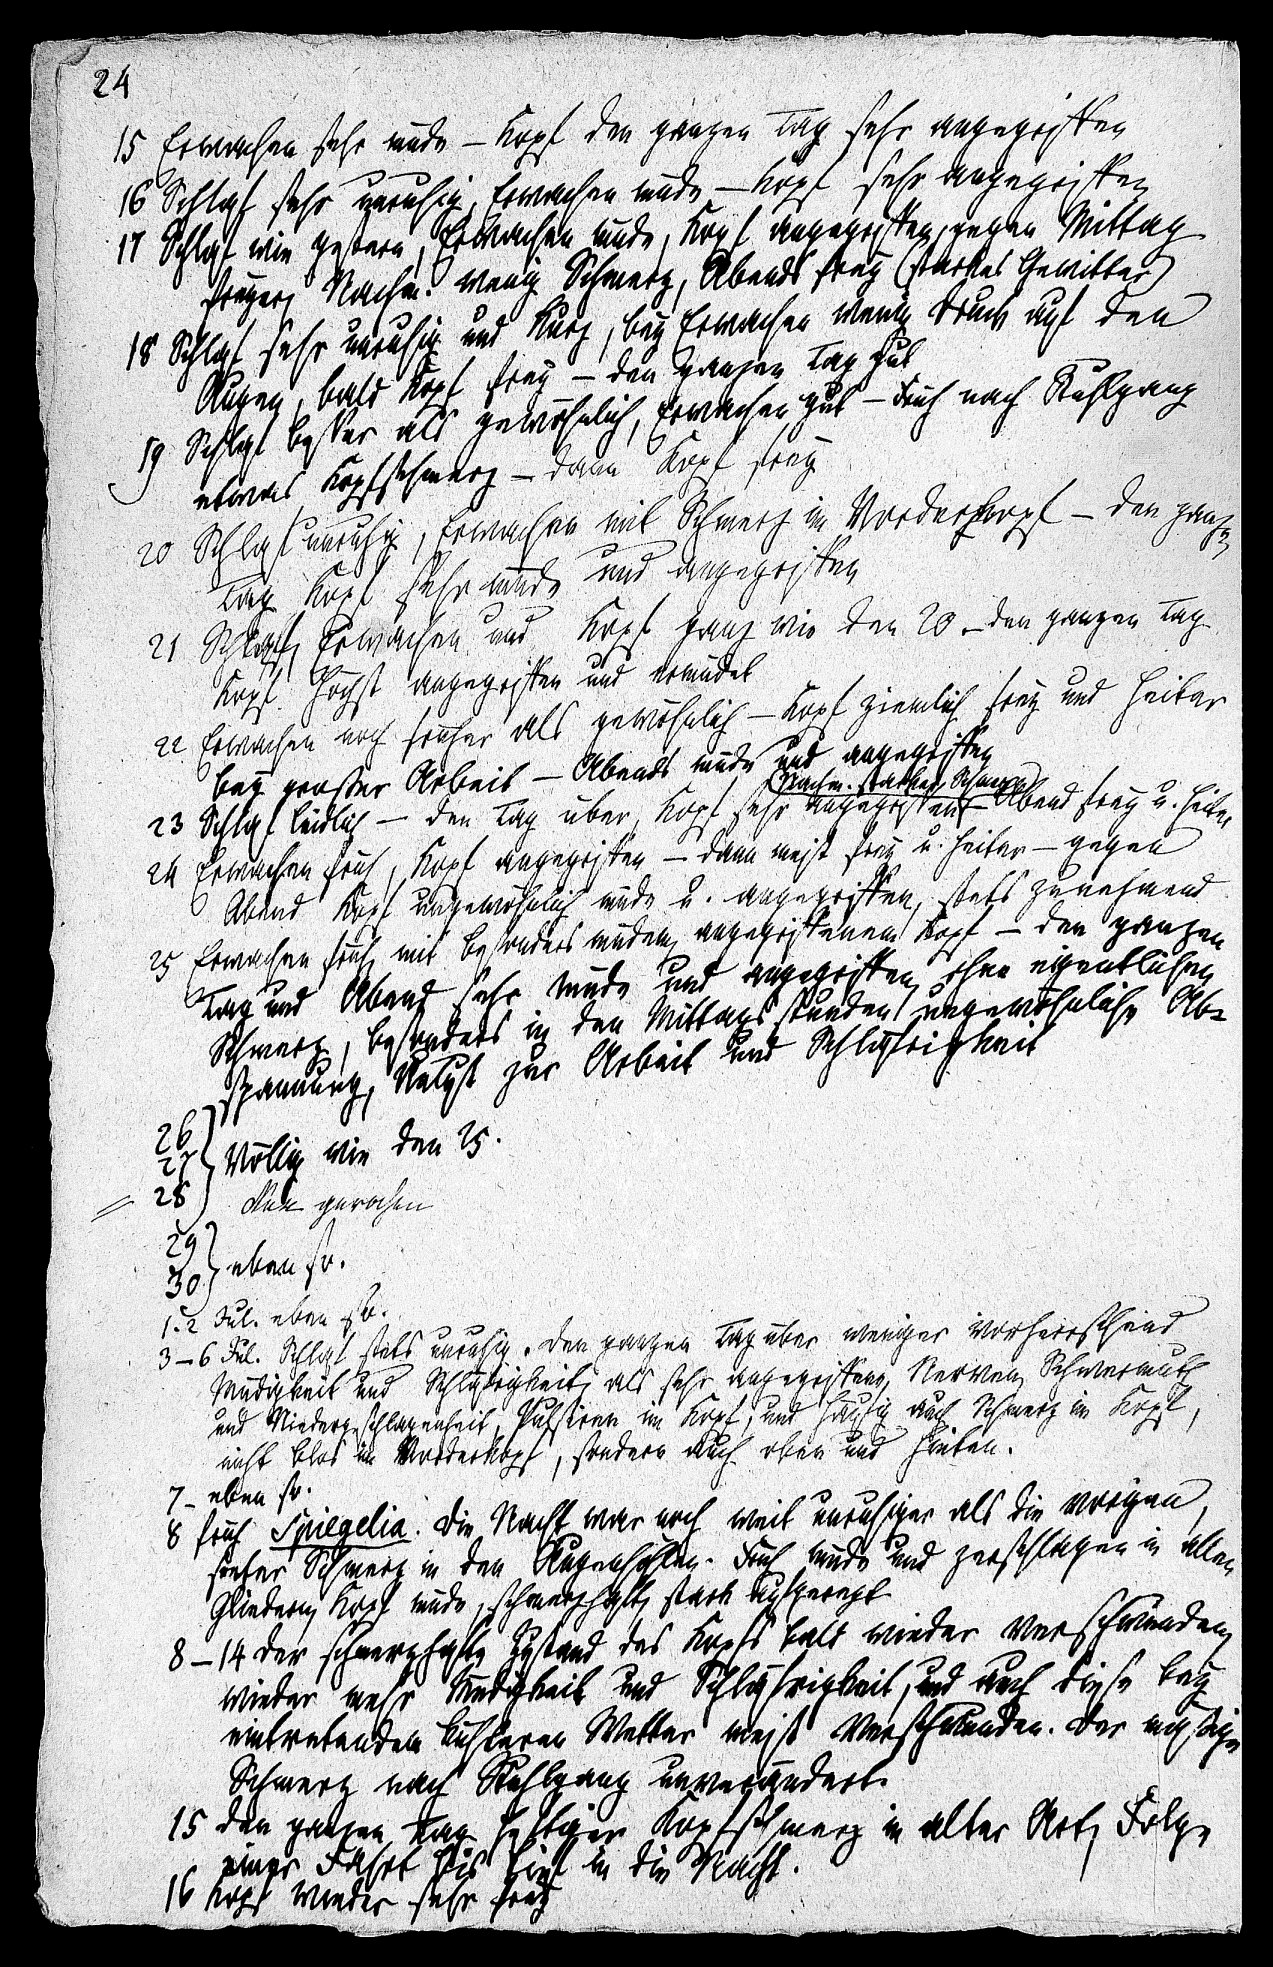 24
15 Erwachen sehr müde – Kopf den ganzen Tag sehr angegriffen
16 Schlaf sehr unruhig, Erwachen müde – Kopf sehr angegriffen
17 Schlaf wie gestern, Erwachen müde, Kopf angegriffen, gegen Mittag
freyer, Nachm. wenig Schmerz, Abends frey (starkes Gewitter)
18 Schlaf sehr unruhig und kurz, bey Erwachen wenig Druck auf den
Augen, bald Kopf frey – den ganzen Tag gut
19 Schlaf besser als gewöhnlich, Erwachen gut – Früh nach Stuhlgang
etwas Kopfschmerz – dann Kopf frey
20 Schlaf unruhig, Erwachen mit Schmerz im Vorderkopf – den ganzen
Tag Kopf sehr müde und angegriffen
21 Schlaf, Erwachen und Kopf ganz wie den 20 – den ganzen Tag
Kopf höchst angegriffen und ermüdet
22 Erwachen noch früher als gewöhnlich – Kopf ziemlich frey und heiter
bey großer Arbeit – Abends müde und angegriffen
Nachm. starker Schmerz
23 Schlaf leidlich – den Tag über, Kopf sehr angegriffen – Abend frey u. heiter
24 Erwachen früh, Kopf angegriffen – dann meist frey u. heiter – gegen
Abend Kopf ungewöhnlich müde u. angegriffen, stets zunehmend
25 Erwachen früh, mit besonders müdem, angegriffenem Kopf – den ganzen
Tag und Abend sehr müde und angegriffen, ohne eigentlichen
Schmerz, besonders in den Mittagsstunden ungewöhnliche Ab=
spannung, Unlust zur Arbeit und Schläfrigkeit
26
27 völlig wie den 25.
28 gerochen
29
30 eben so.
1. 2 Jul. eben so.
3–6 Jul. Schlaf stets unruhig. Den ganzen Tag über weniger vorherrschend
Müdigkeit und Schläfrigkeit, als sehr angegriffene Nerven, Schwermuth
und Niedergeschlagenheit, Pulsiren im Kopf, und häufig auch Schmerz im Kopf,
nicht blos im Vorderkopf, sondern auch oben und hinten.
7 – eben so.
8 früh Spiegelia. Die Nacht war noch weit unruhiger als die vorigen,
Schmerz in den Augenhöhlen. Früh müde und zerschlagen in allen
Gliedern, Kopf müde, schmerzhaft, stark aufgeregt
8–14 der schmerzhafte Zustand des Kopfs bald wieder verschwunden,
wieder mehr Müdigkeit und Schläfrigkeit, und auch diese bey
eintretendem kühleren Wetter meist verschwunden. Der
Schmerz nach Stuhlgang unverändert.
15 den ganzen Tag heftiger Kopfschmerz in alter Art, Folge
einer Fahrt bis tief in die Nacht.
16 Kopf wieder sehr frey